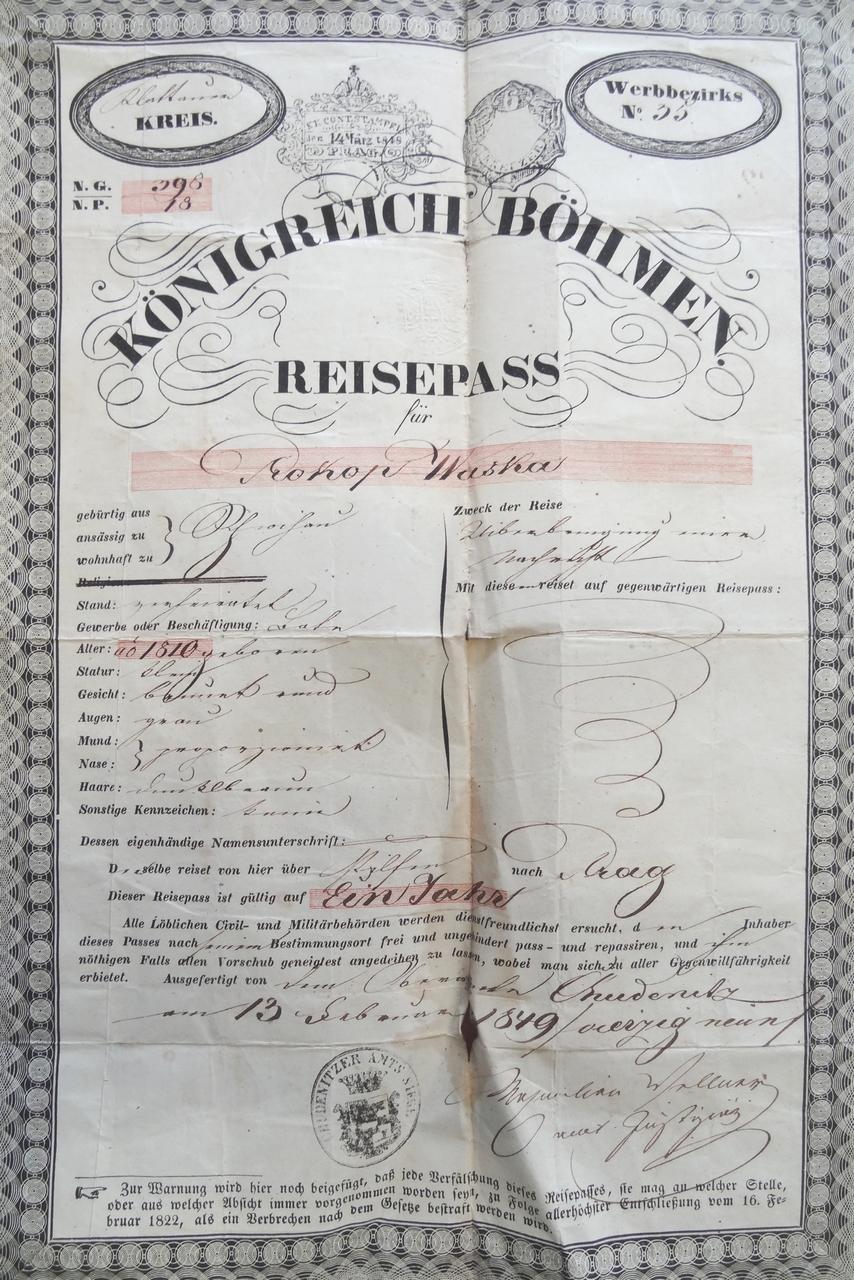 Klattauer
KREIS.
Werbbezirks
Nº 35.
14 März 1848
PRAG
N. G. 398
N. P. 18
KÖNIGREICH BÖHMEN.
REISEPASS
für
Prokop Waska
gebürtig aus
ansässig zu
wohnhaft zu
Zweck der Reise
Nachricht
Stand: verheiratet
Mit diesem reiset auf gegenwärtigen Reisepass:
Gewerbe oder Beschäftigung: Bote
Alter: ao 1810 geboren
Statur: klein
Gesicht: rund
Augen: grau
Mund:
Nase: proporzionirt
Haare: dunkelbraun
Sonstige Kennzeichen: keine
Dessen eigenhändige Namensunterschrift:
Derselbe reiset von hier über Pilsen nach Prag
Dieser Reisepass ist gültig auf Ein Jahr
Alle Löblichen Civil- und Militärbehörden werden dienstfreundlichst ersucht, den Inhaber
dieses Passes nach seinem Bestimmungsort frei und ungehindert pass- und repassiren, und ihm
nöthigen Falls allen Vorschub geneigtest angedeihen zu lassen, wobei man sich zu aller Gegenwillfährigkeit
erbietet. Ausgefertigt von dem Oberamte Chudenitz
am 13 Februar 1849/vierzig neun/
CHUDENITZER AMTS SIEGEL
Zur Warnung wird hier noch beigefügt, daß jede Verfälschung dieses Reisepasses, sie mag an welcher Stelle,
oder aus welcher Absicht immer vorgenommen worden seyn, zu Folge allerhöchster Entschließung vom 16. Fe-
bruar 1822, als ein Verbrechen nach dem Gesetze bestraft werden wird.